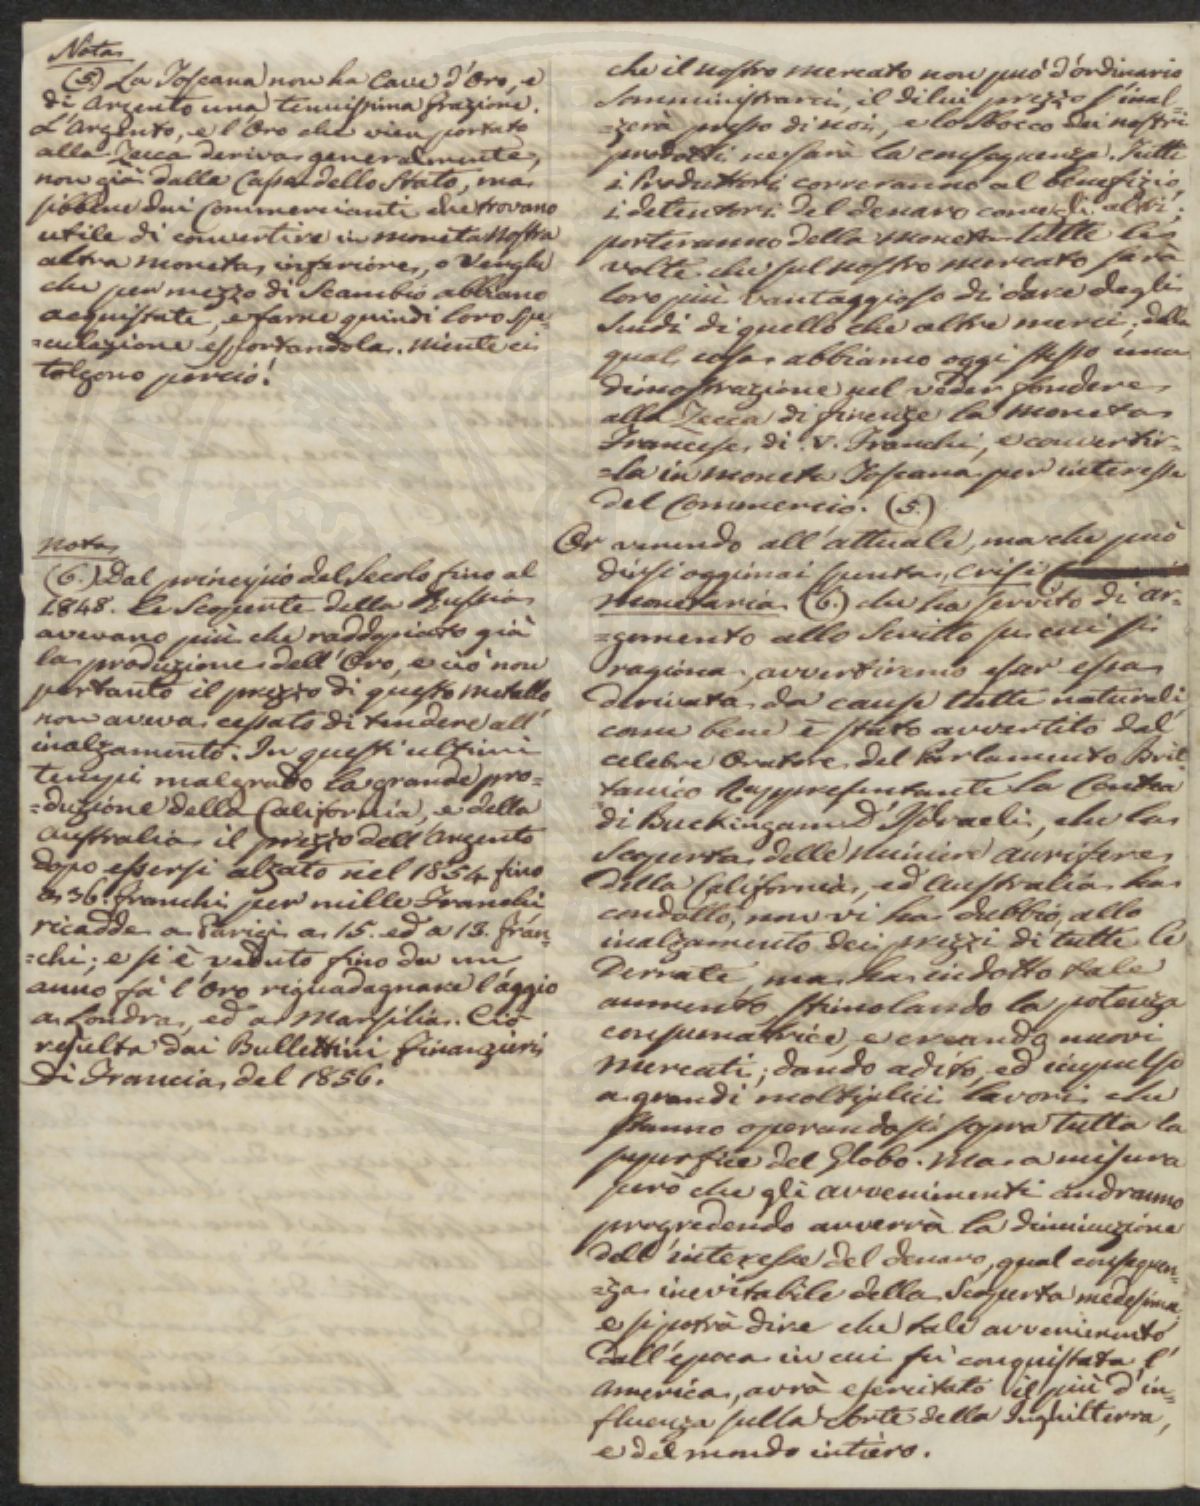 Nota
(5.) La Toscana non ha Cave d'Oro, e
di Argento una tenuissima frazione.
L'Argento, e l'Oro che vien portato
alla Zecca deriva generalmente,
non già dalla Cassa dello Stato, ma
sibbene dai Commercianti che trovano
utile di convertire in moneta nostra
altra moneta inferiore, o Verghe
che per mezzo di Scambio abbiano
acquistate, e farne quindi loro spe-
=culazione esportandola. Niente ci
tolgono perciò!
nota
(6.) Dal principio del Secolo fino al
1848. le Scoperte della Russia
avevano più che raddopiato già
la produzione dell'Oro, e ciò non
pertanto il prezzo di questo metallo
non aveva cessato di tendere all'
inalzamento. In questi ultimi
tempi malgrado la grande pro-
=duzione della California, e della
Australia il prezzo dell'Argento
dopo essersi alzato nel 1854 fino
a 36. franchi per mille Franchi
ricadde a Parigi a 15. ed a 13. fran-
=chi; e si è veduto fino da un
anno fà l'Oro riguadagnare l'aggio
a Londra, ed a Marsilia. Ciò
resulta dai Bullettini finanzieri
di Francia del 1856.
che il nostro mercato non può d'ordinario
somministrarci, il di lui prezzo s'inal-
=zerà presso di noi, e lo sbocco dei nostri
prodotti ne sarà la conseguenza. Tutti
i Produttori correranno al benefizio,
i detentori del denaro come gli altri;
porteranno della moneta tutte le
volte che sul nostro mercato sarà
loro più vantaggioso di dare degli
Scudi di quello che altre merci; della
qual cosa abbiamo oggi stesso una
dimostrazione nel veder fondere
alla Zecca di firenze la moneta
Francese di .V. Franchi, e convertir-
=la in moneta Toscana per interesse
del Commercio. (5.)
Or venendo all'attuale, ma che può
dirsi oggimai spenta, crisi
monetaria (6.) che ha servito di ar-
=gomento allo Scritto su cui si
ragiona, avvertiremo esser essa
derivata da cause tutte naturali
come bene è stato avvertito dal
celebre Oratore del Parlamento Bri-
tanico Rappresentante la Contea
di Buckingam D'Isdraeli, che la
Scoperta delle miniere aurifere
della California, ed Australia ha
condotto, non vi ha dubbio, allo
inalzamento dei prezzi di tutte le
Derrate, ma ha indotto tale
aumento stimolando la potenza
consumatrice, e creando nuovi
mercati; dando adito, ed impulso
a grandi moltiplici lavori che
stanno operandosi sopra tutta la
superfice del Globo. Ma a misura
però che gli avvenimenti andranno
progredendo avverrà la diminuzione
dell'interesse del denaro, qual conseguen-
=za inevitabile della Scoperta medesima,
e si potrà dire che tale avvenimento
dall'epoca in cui fù conquistata l'
America, avrà esercitato il più d'in-
fluenza sulla sorte della Inghilterra,
e del mondo intièro.